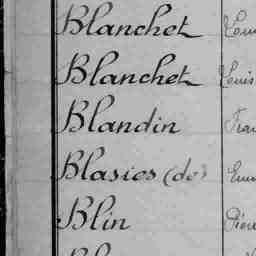 Blanchet
Blanchet Louis
Blandin
Blasies (de)
Blin